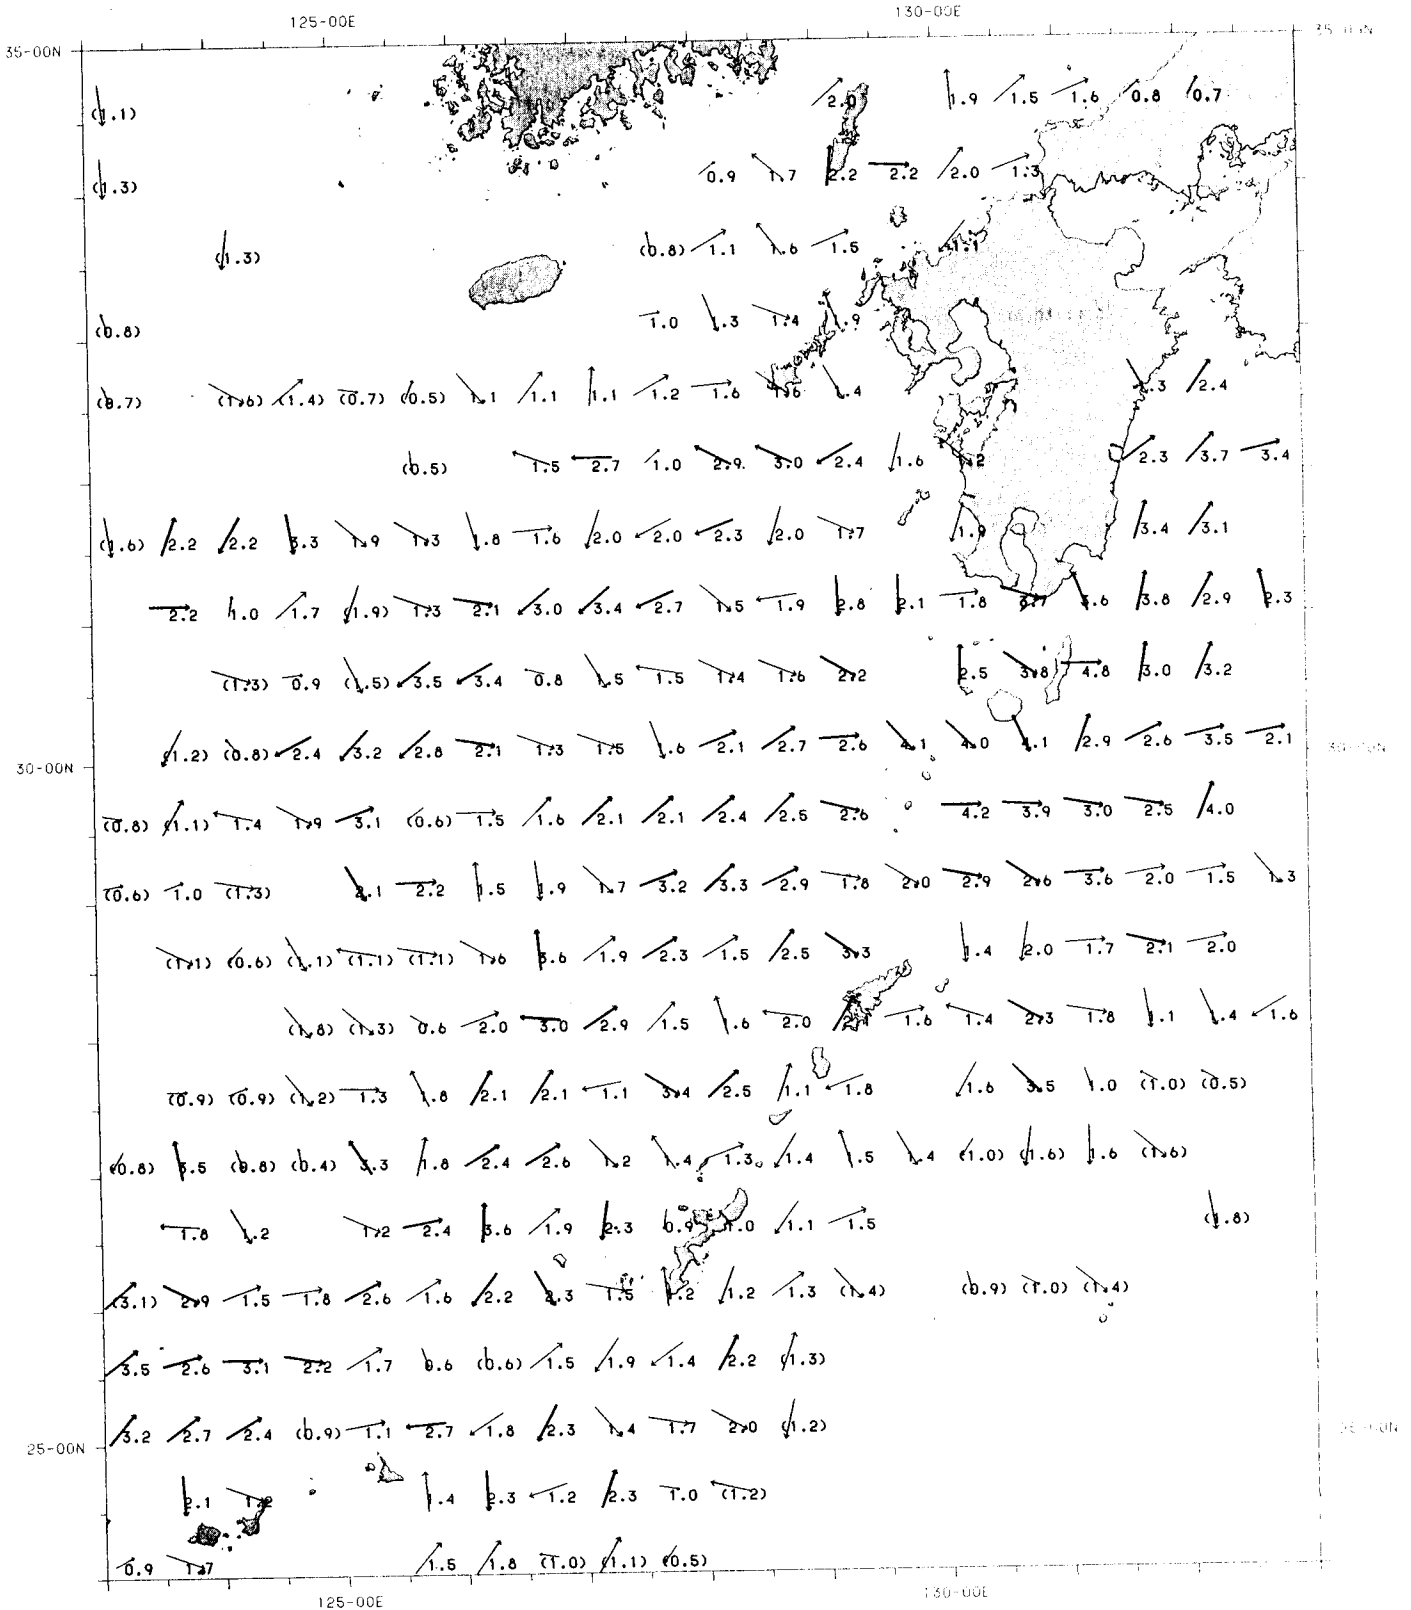 125-00E 130-00E
35-00N 35-00N
(1.1) 2.0 1.9 1.5 1.6 0.8 0.7
(1.3) 0.9 1.7 2.2 2.2 2.0 1.3
(1.3) (0.8) 1.1 1.6 1.5 1.1
(0.8) 1.0 1.3 1.4 1.9
(0.7) (1.6) (1.4) (0.7) (0.5) 1.1 1.1 1.1 1.2 1.6 1.6 1.4 2.4
(0.5) 1.5 2.7 1.0 2.9 3.0 2.4 1.6 2.3 3.7 3.4
(1.6) 2.2 2.2 3.3 1.9 1.3 1.8 1.6 2.0 2.0 2.3 2.0 1.7 1.9 3.4 3.1
2.2 1.0 1.7 (1.9) 1.3 2.1 3.0 3.4 2.7 1.5 1.9 2.8 2.1 1.8 3.7 3.6 3.8 2.9 2.3
(1.3) 0.9 (1.5) 3.5 3.4 0.8 1.5 1.5 1.4 1.6 2.2 2.5 3.8 4.8 3.0 3.2
(1.2) (0.8) 2.4 3.2 2.8 2.1 1.3 1.5 1.6 2.1 2.7 2.6 4.1 4.0 4.1 2.9 2.6 3.5 2.1
30-00N 30-00N
(0.8) (1.1) 1.4 1.9 3.1 (0.6) 1.5 1.6 2.1 2.1 2.4 2.5 2.6 4.2 3.9 3.0 2.5 4.0
(0.6) 1.0 (1.3) 2.1 2.2 1.5 1.9 1.7 3.2 3.3 2.9 1.8 2.0 2.9 2.6 3.6 2.0 1.5 1.3
(1.1) (0.6) (1.1) (1.1) (1.1) 1.6 3.6 1.9 2.3 1.5 2.5 3.3 1.4 2.0 1.7 2.1 2.0
(1.8) (1.3) 0.6 2.0 3.0 2.9 1.5 1.6 2.0 2.1 1.6 1.4 2.3 1.8 1.1 1.4 1.6
(0.9) (0.9) (1.2) 1.3 1.8 2.1 2.1 1.1 3.4 2.5 1.1 1.8 1.6 3.5 1.0 (1.0) (0.5)
(0.8) 3.5 (0.8) (0.4) 3.3 1.8 2.4 2.6 1.2 1.4 1.3 1.4 1.5 1.4 (1.0) (1.6) 1.6 (1.6)
1.8 1.2 1.2 2.4 3.6 1.9 2.3 0.9 1.0 1.1 1.5 (1.8)
(3.1) 2.9 1.5 1.8 2.6 1.6 2.2 2.3 1.5 1.2 1.2 1.3 (1.4) (0.9) (1.0) (1.4)
3.5 2.6 3.1 2.2 1.7 0.6 (0.6) 1.5 1.9 1.4 2.2 (1.3)
3.2 2.7 2.4 (0.9) 1.1 2.7 1.8 2.3 1.4 1.7 2.0 (1.2)
25-00N
2.1 1.2 1.4 2.3 1.2 2.3 1.0 (1.2)
0.9 1.7 1.5 1.8 (1.0) (1.1) (0.5)
125-00E 130-00E